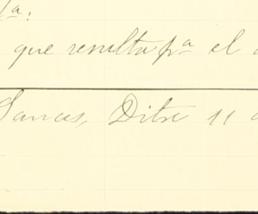 ta.
que resulta pa el
Sances, Ditre 11